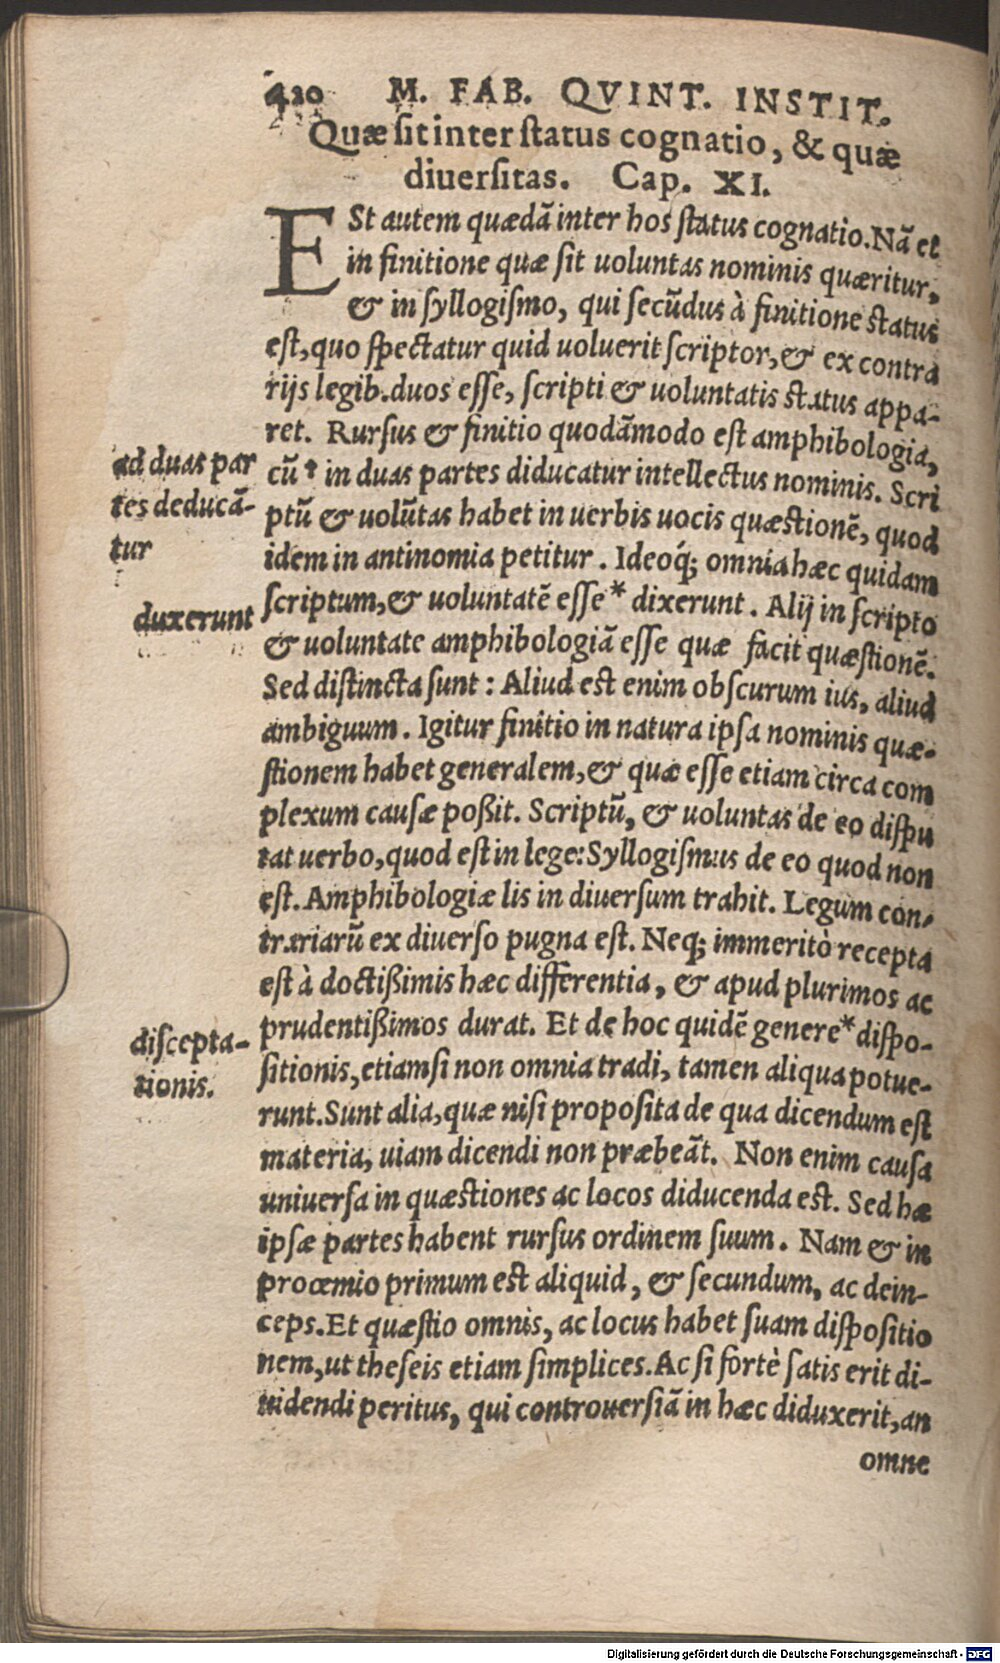 420 M. FAB. QVINT. INSTIT.
Quæ sit inter status cognatio, & quæ
diuersitas. Cap. XI.
ESt autem quædã inter hos status cognatio. Nã et
in finitione quæ sit uoluntas nominis quæritur,
& in syllogismo, qui secũdus à finitione status
est, quo spectatur quid uoluerit scriptor, & ex contra
rijs legib. duos esse, scripti & uoluntatis status appa-
ret. Rursus & finitio quodãmodo est amphibologia,
cũ † in duas partes diducatur intellectus nominis. Scri
ptũ & uolũtas habet in uerbis uocis quæstionẽ, quod
idem in antinomia petitur. Ideoq́; omnia hæc quidam
scriptum, & uoluntatẽ esse * dixerunt. Alij in scripto
& uoluntate amphibologiã esse quæ facit quæstionẽ.
Sed distincta sunt: Aliud est enim obscurum ius, aliud
ambiguum. Igitur finitio in natura ipsa nominis quæ-
stionem habet generalem, & quæ esse etiam circa com
plexum causæ poßit. Scriptũ, & uoluntas de eo dispu
tat uerbo, quod est in lege: Syllogismus de eo quod non
est. Amphibologiæ lis in diuersum trahit. Legum con-
trariarũ ex diuerso pugna est. Neq; immeritò recepta
est à doctißimis hæc differentia, & apud plurimos ac
prudentißimos durat. Et de hoc quidẽ genere * dispo-
sitionis, etiamsi non omnia tradi, tamen aliqua potue-
runt. Sunt alia, quæ nisi proposita de qua dicendum est
materia, uiam dicendi non præbeãt. Non enim causa
uniuersa in quæstiones ac locos diducenda est. Sed hæ
ipsæ partes habent rursus ordinem suum. Nam & in
proœmio primum est aliquid, & secundum, ac dein-
ceps. Et quæstio omnis, ac locus habet suam dispositio
nem, ut theseis etiam simplices. Ac si fortè satis erit di-
uidendi peritus, qui controuersiã in hæc diduxerit, an
omne
ad duas par
tes deducã-
tur
duxerunt
discepta-
tionis.
Digitalisierung gefördert durch die Deutsche Forschungsgemeinschaft - DFG